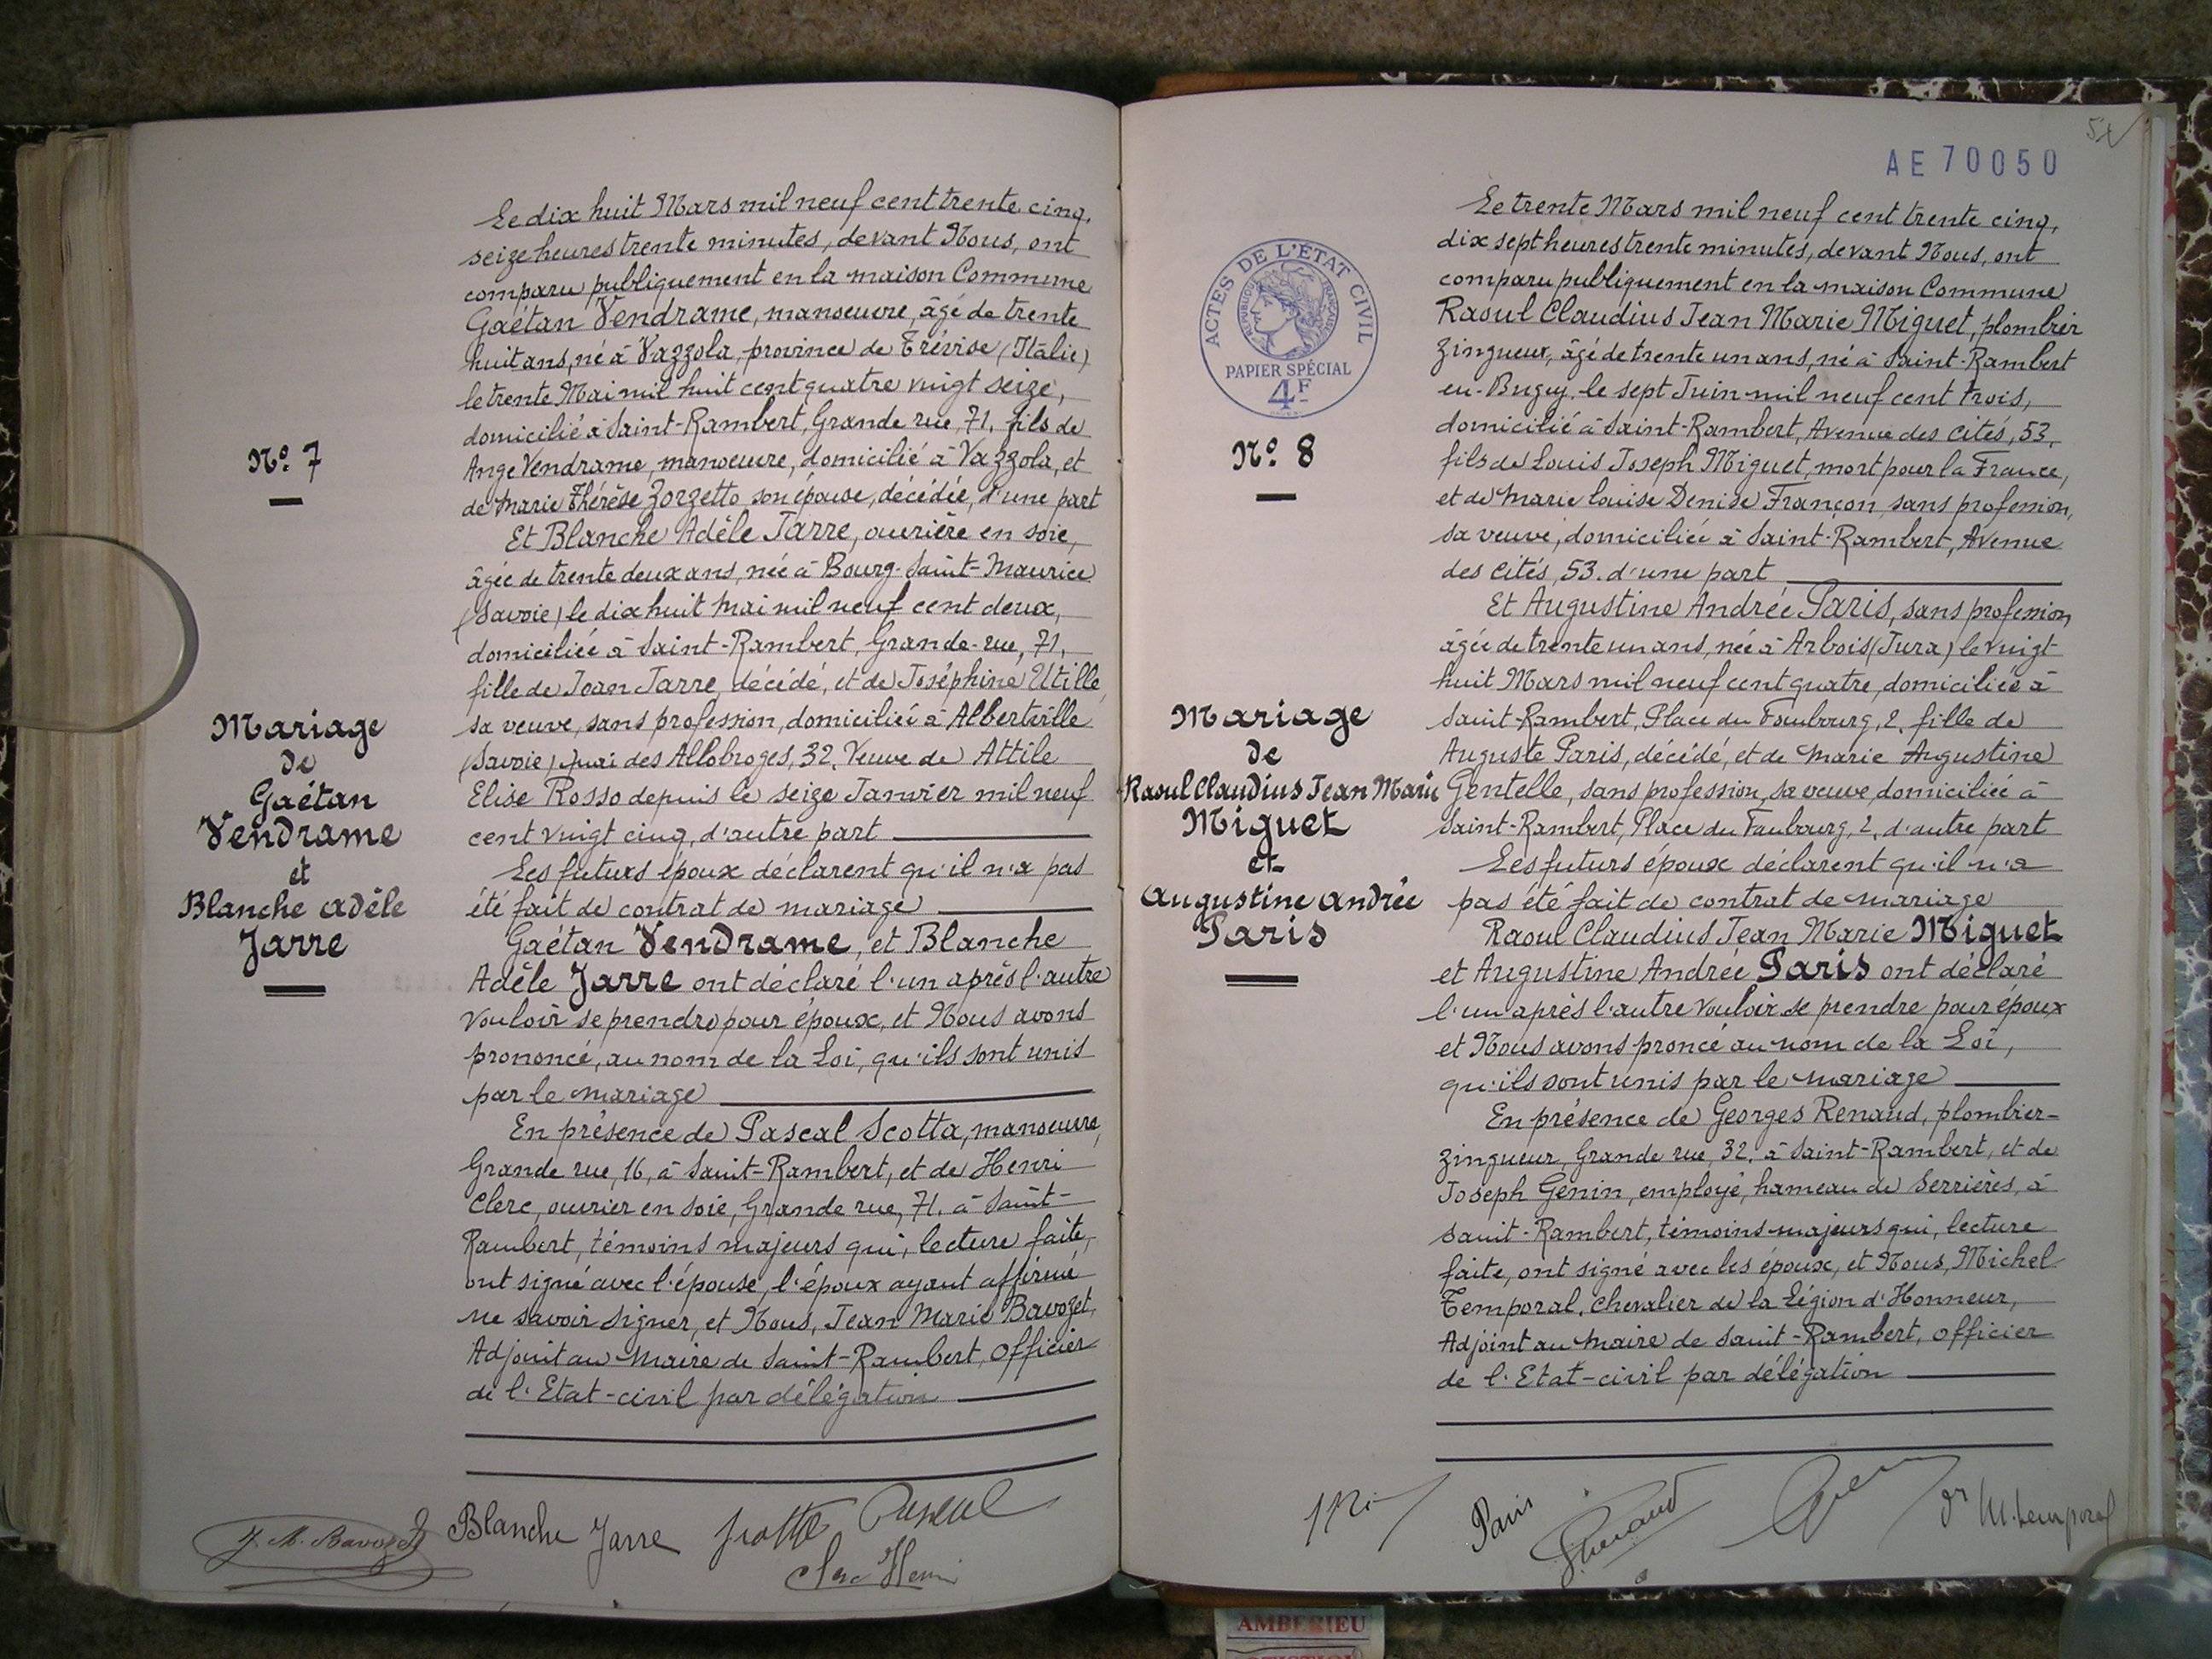 Le dix huit Mars mil neuf cent trente cinq,
seize heures trente minutes, devant Nous, ont
comparu publiquement en la maison Commune
Gaétan Vendrame, manoeuvre, âgé de trente
huit ans, né à Vazzola, province de Trévise (Italie)
le trente Mai mil huit cent quatre vingt seize,
domicilié à Saint-Rambert, Grande rue, 71, fils de
Ange Vendrame, manoeuvre, domicilié à Vazzola, et
de Marie Thérèse Zorzetto son épouse, décédée, d'une part
Et Blanche Adèle Jarre, ouvrière en soie,
âgée de trente deux ans, née à Bourg-Saint-Maurice
(Savoie) le dix huit Mai mil neuf cent deux,
domiciliée à Saint-Rambert, Grande-rue, 71,
fille de Jean Jarre, décédé, et de Joséphine Utille
sa veuve, sans profession, domiciliée à Albertville
(Savoie) Quai des Allobroges, 32, Veuve de Attile
Elise Rosso depuis le seize Janvier mil neuf
cent vingt cinq, d'autre part
Les futurs époux déclarent qu'il n'a pas
été fait de contrat de mariage
Gaétan Vendrame, et Blanche
Adèle Jarre ont déclaré l'un après l'autre
vouloir se prendre pour époux, et Nous avons
prononcé, au nom de la Loi, qu'ils sont unis
par le mariage
En présence de Pascal Scotta, manoeuvre,
Grande rue, 16, à Saint-Rambert, et de Henri
Clerc, ouvrier en soie, Grande rue, 71, à Saint-
Rambert, témoins majeurs qui, lecture faite,
ont signé avec l'épouse, l'époux ayant affirmé
ne savoir signer, et Nous, Jean Marie Bavozet,
Adjoint au Maire de Saint-Rambert, Officier
de l'Etat-civil par délégation
N° 7
Mariage
de
Gaétan
Vendrame
et
Blanche Adèle
Jarre
J. M. Bavozet
Blanche Jarre
Clerc Henri
AE 70050
ACTES DE L'ÉTAT CIVIL
RÉPUBLIQUE FRANÇAISE
PAPIER SPÉCIAL
4F
N° 8
Mariage
de
Raoul Claudius Jean Marie
Miguet
et
Augustine Andrée
Paris
Le trente Mars mil neuf cent trente cinq,
dix sept heures trente minutes, devant Nous, ont
comparu publiquement en la maison Commune
Raoul Claudius Jean Marie Miguet, plombier
zingueur, âgé de trente un ans, né à Saint-Rambert
en-Bugey, le sept Juin mil neuf cent trois,
domicilié à Saint-Rambert, Avenue des Cités, 53,
fils de Louis Joseph Miguet, mort pour la France,
et de Marie Louise Denise Françon, sans profession,
sa veuve, domiciliée à Saint-Rambert, Avenue
des Cités, 53. d'une part
Et Augustine Andrée Paris, sans profession,
âgée de trente un ans, née à Arbois (Jura) le vingt
huit Mars mil neuf cent quatre, domiciliée à
Saint-Rambert, Place du Faubourg, 2, fille de
Auguste Paris, décédé, et de Marie Augustine
Gentelle, sans profession, sa veuve, domiciliée à
Saint-Rambert, Place du Faubourg, 2, d'autre part
Les futurs époux déclarent qu'il n'a
pas été fait de contrat de mariage
Raoul Claudius Jean Marie Miguet
et Augustine Andrée Paris ont déclaré
l'un après l'autre vouloir se prendre pour époux
et Nous avons proncé au nom de la Loi,
qu'ils sont unis par le mariage
En présence de Georges Renaud, plombier-
zingueur, Grande rue, 32, à Saint-Rambert, et de
Joseph Genin, employé, hameau de Serrières, à
Saint-Rambert, témoins majeurs qui, lecture
faite, ont signé avec les époux, et Nous, Michel
Temporal, Chevalier de la Légion d'Honneur,
Adjoint au Maire de Saint-Rambert, Officier
de l'Etat-civil par délégation
Paris
GRenaud
Dr M. Temporal
AMBERIEU